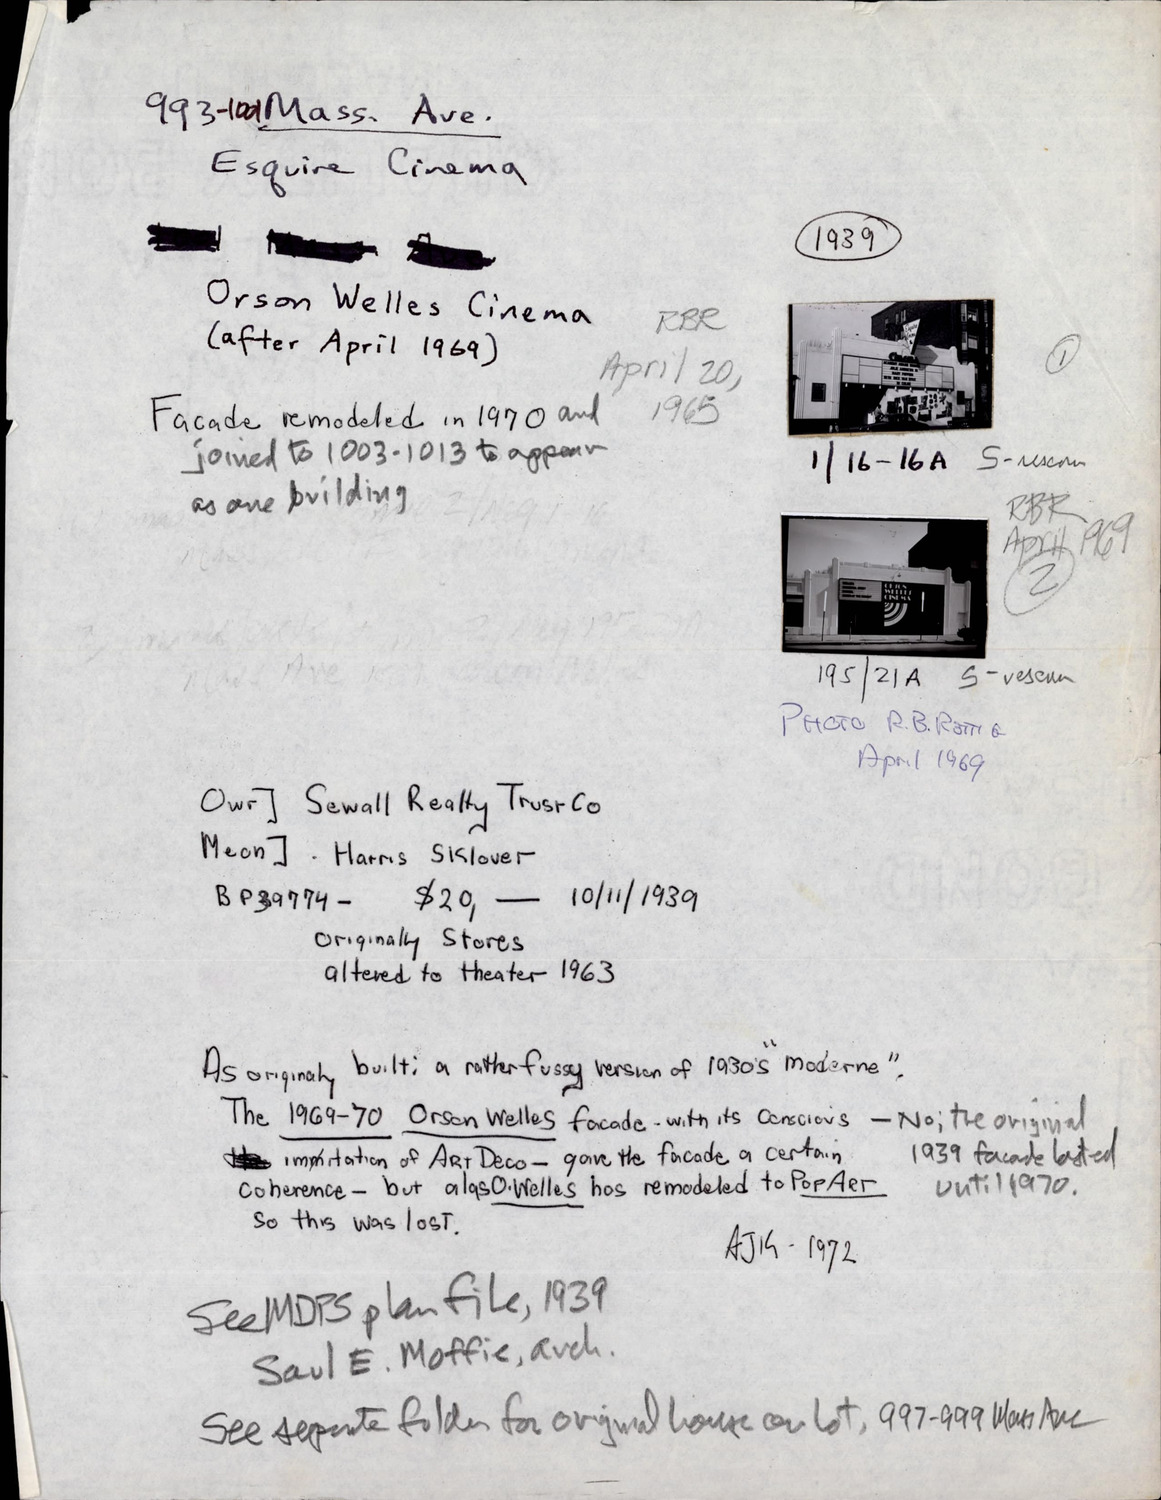 993-1001 Mass. Ave.
Esquire Cinema
1939
Orson Welles Cinema
(after April 1969)
RBR
April 20,
1965
1
Facade remodeled in 1970 and
joined to 1003-1013 to appear
as one building
1/16-16A S-rescan
RBR
April 1969
2
ORSON
WELLES
CINEMA
195/21A S-rescan
PHOTO R.B. Rettig
April 1969
Owr] Sewall Realty Trust Co
Mecn] . Harris Sklover
BP39774 - $20, — 10/11/1939
originally Stores
altered to theater 1963
As originaly built: a rather fussy version of 1930's "moderne".
The 1969-70 Orson Welles facade - with its conscious — No; the original
immitation of Art Deco - gave the facade a certain 1939 facade lasted
coherence - but alas O. Welles has remodeled to Pop Art until 1970.
so this was lost.
AJK - 1972
See MDPS plan file, 1939
Saul E. Moffie, arch.
See separate folder for original house on lot, 997-999 Mass Ave